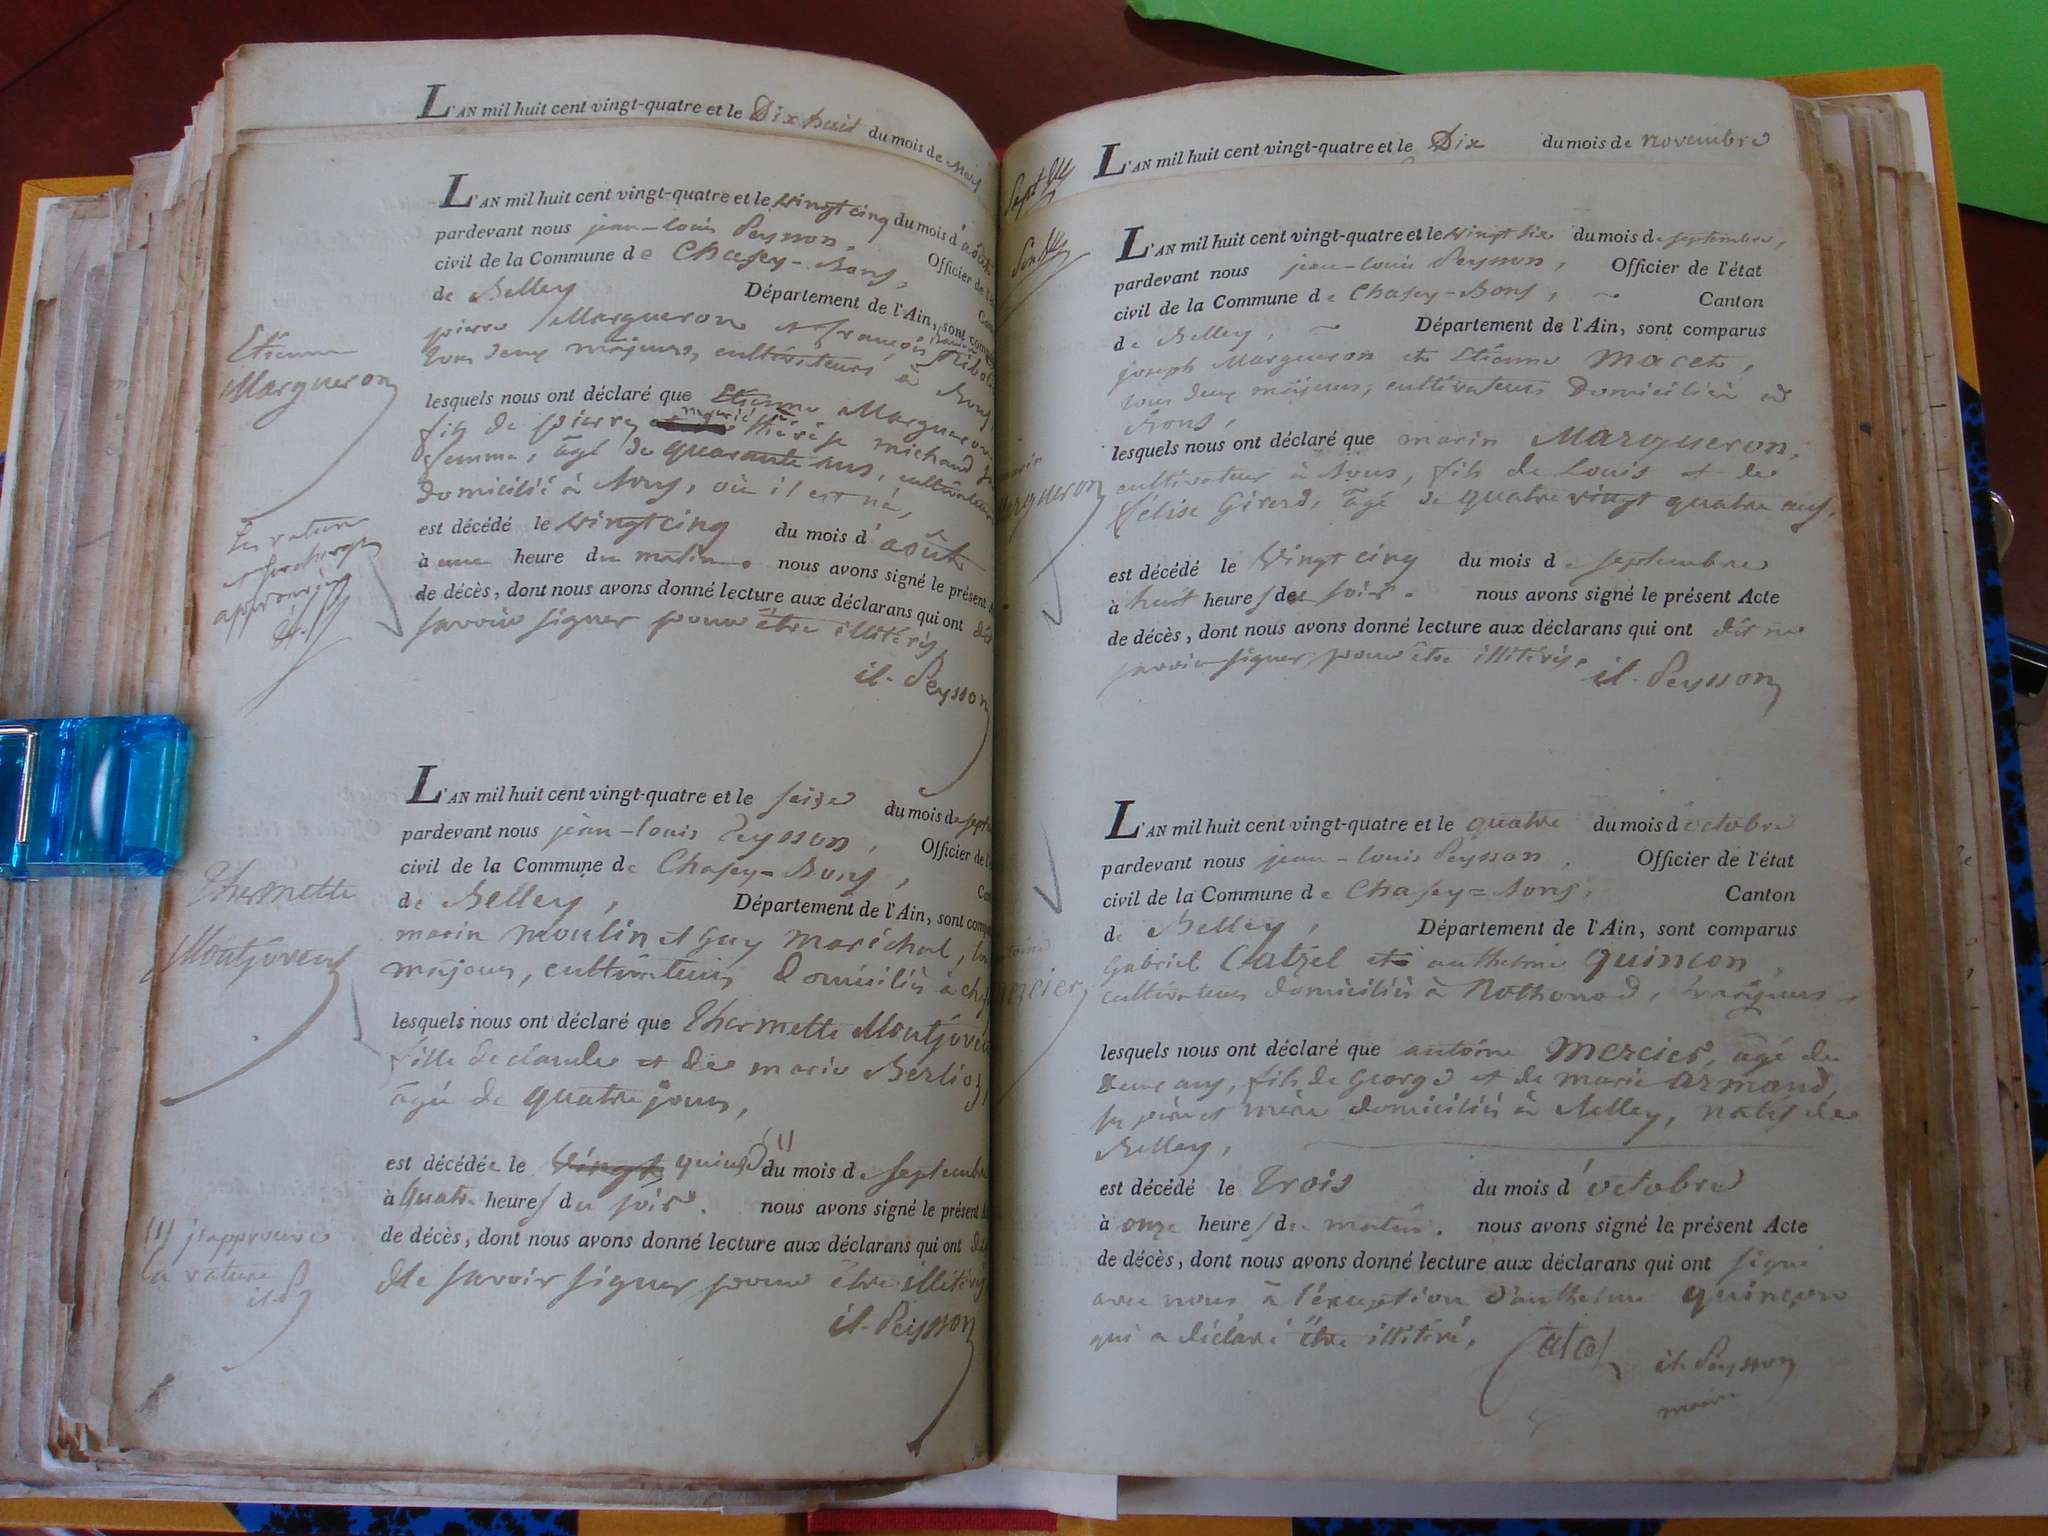 L'AN mil huit cent vingt-quatre et le Dix huit du mois de
L'AN mil huit cent vingt-quatre et le vingt cinq du mois d'
pardevant nous jean-louis Peysson, Officier de
civil de la Commune de Chasey-Bons,
de Belley Département de l'Ain, sont
pierre Margueron et françois
tous deux majeurs, cultivateurs à Bons,
Etienne
Margueron
lesquels nous ont déclaré que Etienne Margueron
fils de pierre, marié à thérèse michaud
femme, âgé de quarante ans, cultivateur
domicilié à Bons, où il est né,
est décédé le vingt cinq du mois d'août
à une heure du matin. nous avons signé le présent
de décès, dont nous avons donné lecture aux déclarans qui ont
savoir signer pour être illitérés,
il. Peysson
et surcharge
approuvées
L'AN mil huit cent vingt-quatre et le seize du mois de
pardevant nous jean-louis Peysson, Officier de
civil de la Commune de Chasey-Bons,
de Belley, Département de l'Ain, sont
marin moulin et Guy maréchal,
majeurs, cultivateurs domiciliés à
Thermette
Montjovent
lesquels nous ont déclaré que Thermette Montjovent
fille de claude et de marie Berlioz,
âgée de quatre jours,
est décédée le vingt quinze (1) du mois de septembre
à quatre heures du soir. nous avons signé le présent
de décès, dont nous avons donné lecture aux déclarans qui ont
de savoir signer pour être illitérés
il. Peysson
(1) j'approuve
la rature
L'AN mil huit cent vingt-quatre et le Dix du mois de novembre
L'AN mil huit cent vingt-quatre et le vingt six du mois de septembre,
pardevant nous jean-louis Peysson, Officier de l'état
civil de la Commune de Chasey-Bons, Canton
de Belley, Département de l'Ain, sont comparus
joseph Margueron et Etienne Macet,
tous deux majeurs, cultivateurs domiciliés à
Bons,
lesquels nous ont déclaré que marin Margueron,
cultivateur à Bons, fils de Louis et de
félise Girerd, âgé de quatre vingt quatre ans,
est décédé le vingt cinq du mois de septembre
à huit heures du soir. nous avons signé le présent Acte
de décès, dont nous avons donné lecture aux déclarans qui ont dit ne
savoir signer pour être illitérés, il. Peysson
L'AN mil huit cent vingt-quatre et le quatre du mois d'octobre
pardevant nous jean-louis Peysson, Officier de l'état
civil de la Commune de Chasey-Bons, Canton
de Belley, Département de l'Ain, sont comparus
Gabriel Catzel et anthelme Quinson,
cultivateurs domiciliés à Rothonod, majeurs,
lesquels nous ont déclaré que antoine Mercier, âgé de
deux ans, fils de George et de marie Armand,
ses père et mère domiciliés à Belley, natif de
Belley,
est décédé le trois du mois d'octobre
à onze heures du matin. nous avons signé le présent Acte
de décès, dont nous avons donné lecture aux déclarans qui ont signé
avec nous à l'exception d'anthelme Quinson
qui a déclaré être illitéré,
il. Peysson
maire